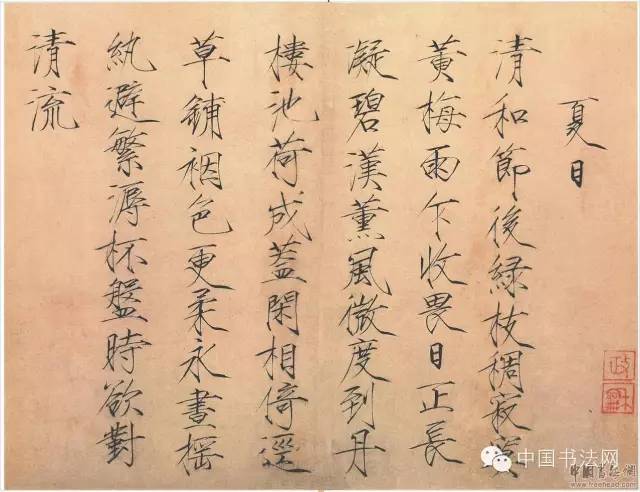 夏日
清和節後緑枝稠寂寞
黃梅雨乍收畏日正長
凝碧漢薰風微度到丹
樓池荷成蓋閑相倚逕
草鋪裀色更柔永晝搖
紈避繁溽杯盤時欲對
清流
政和
中国书法网
www.freehead.com